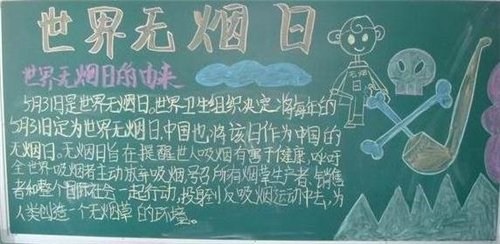 世界无烟日
世界无烟日的由来
无烟
5月31日是世界无烟日,世界卫生组织决定将每年的
5月31日定为世界无烟日中国也将该日作为中国的
无烟日。无烟日旨在提醒世人吸烟有害于健康,呼吁
全世界吸烟者主动放弃吸烟号召所有烟草生产者、销售
者和整个国际社会一起行动,投身到反吸烟运动中去,为
人类创造一个无烟草的环境。